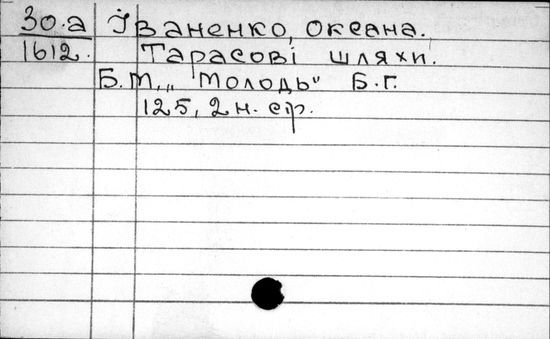 30.а Іваненко, Океана.
1612. Тарасові шляхи.
Б.м., "Молодь" Б.г.
125, 2 н. ср.